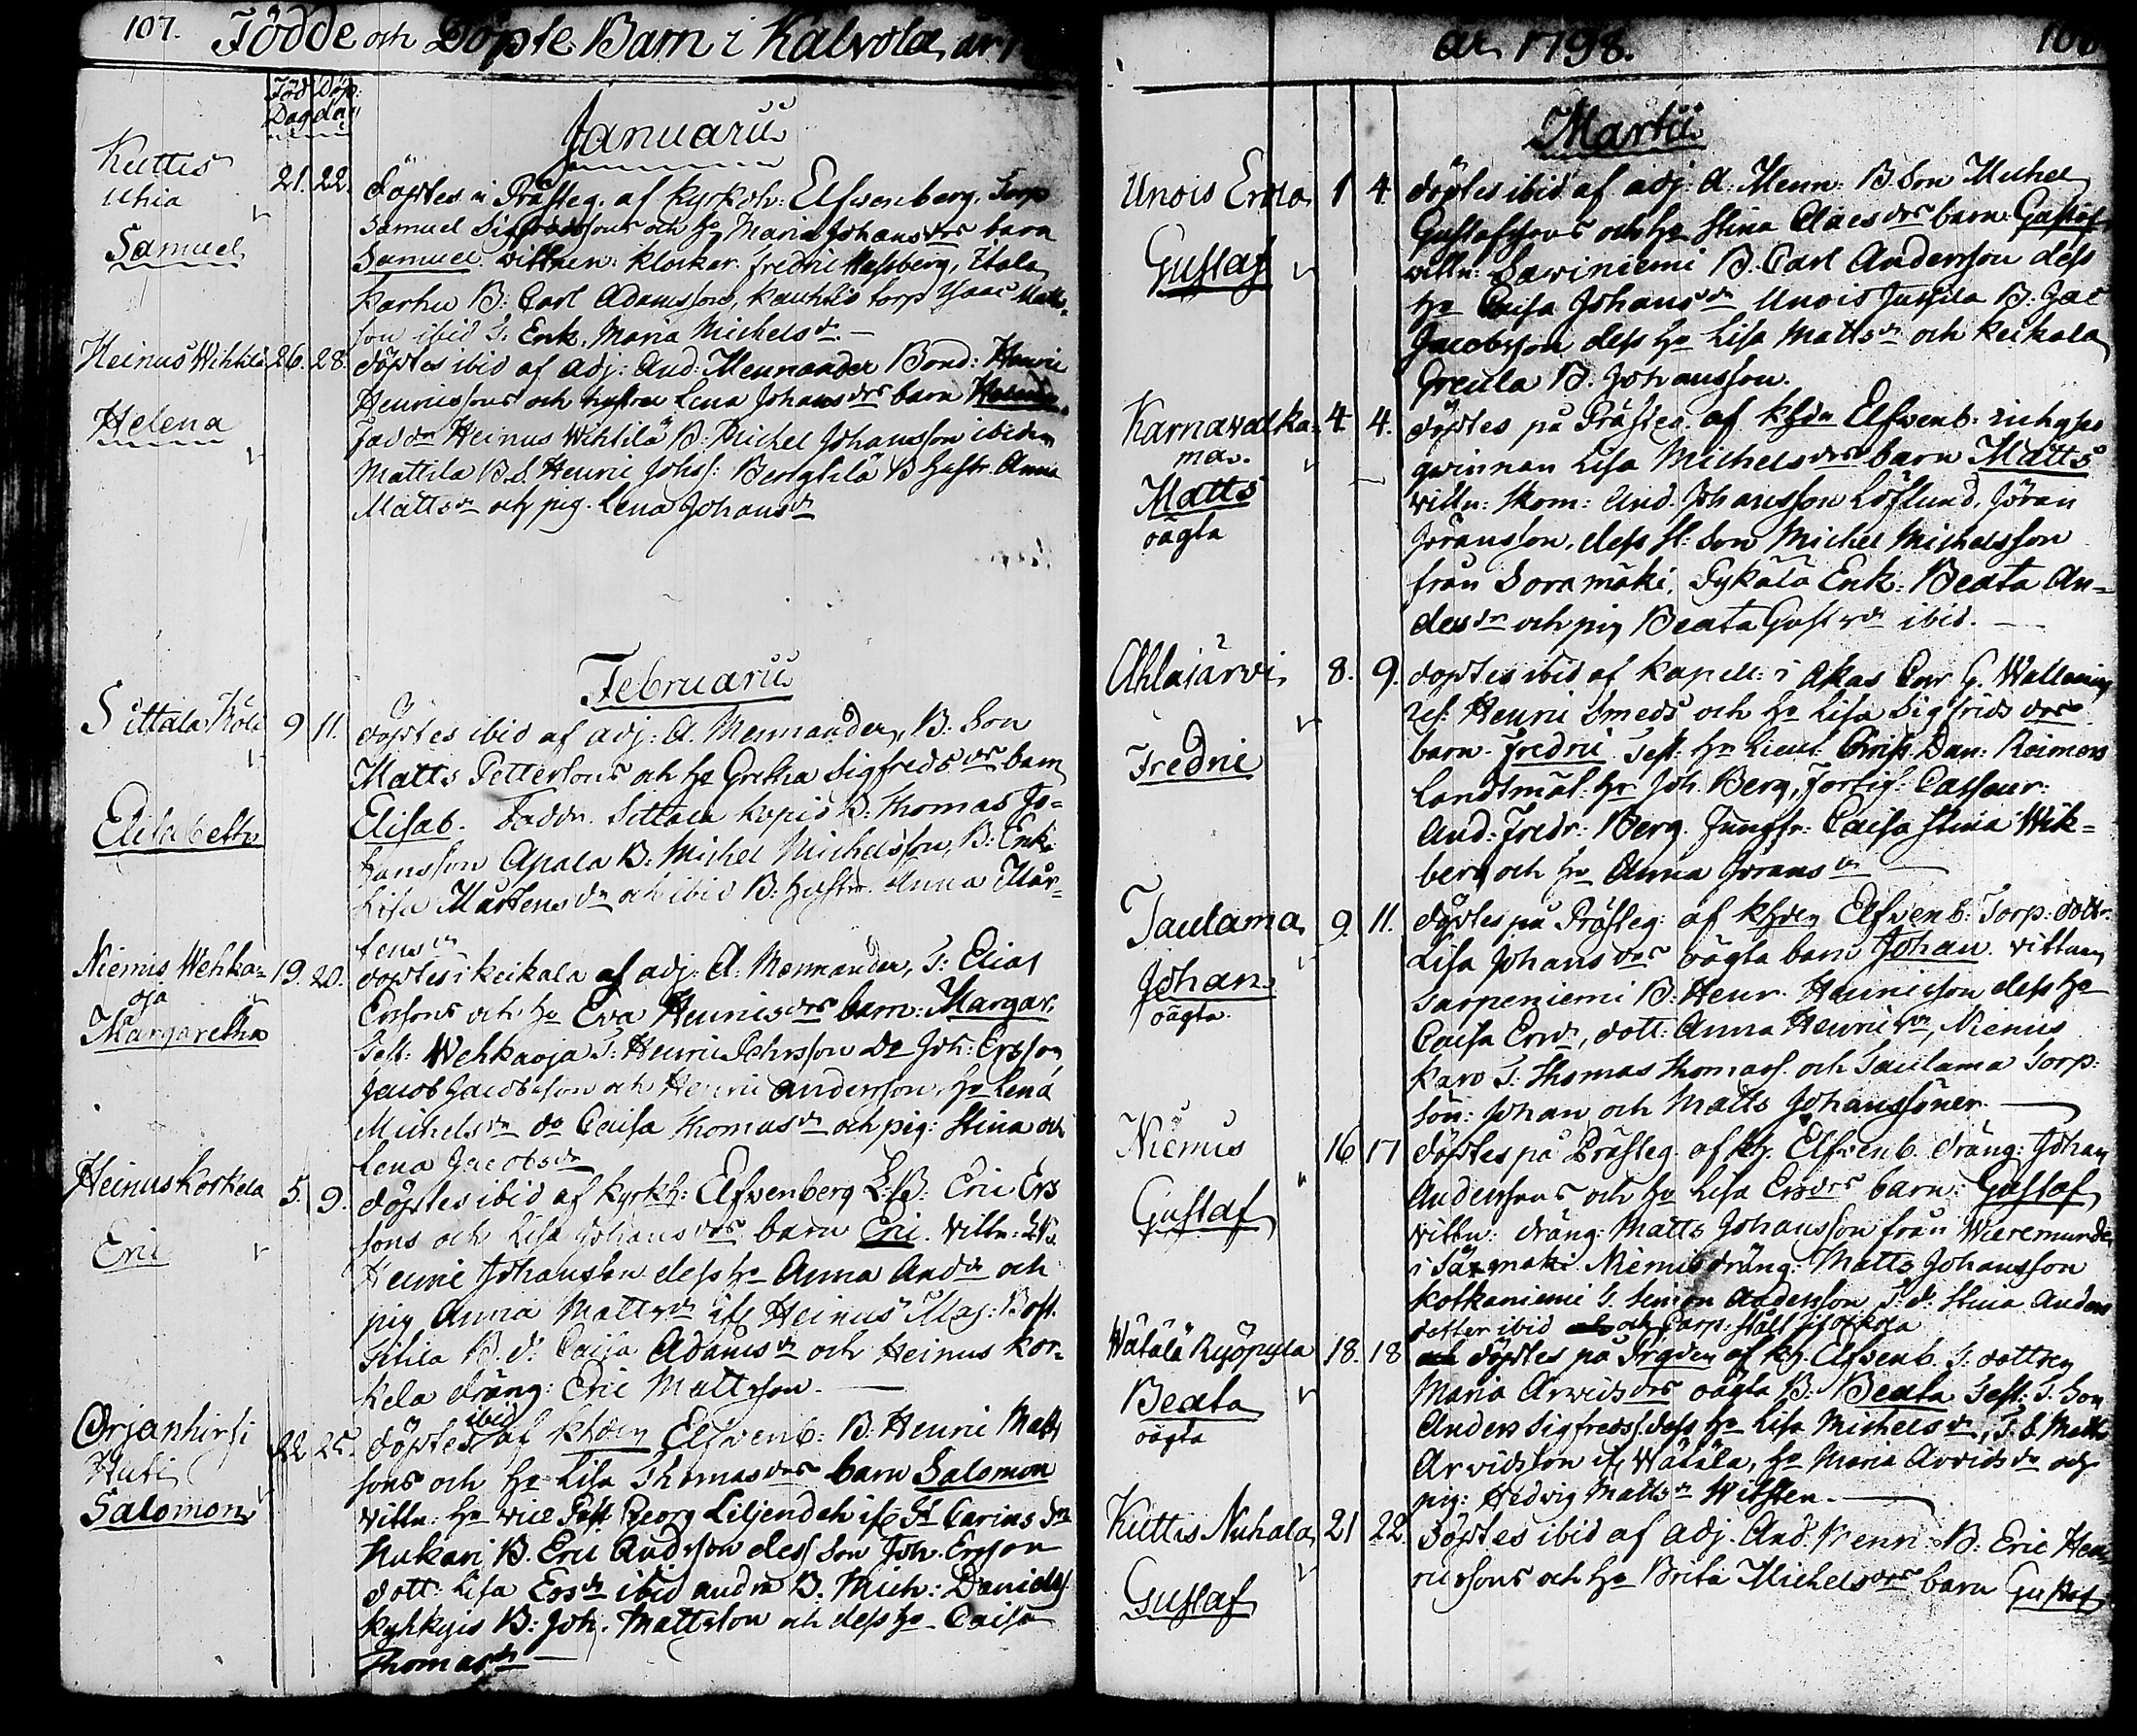 107. Födde och Döpte Barn i Kalvola, år
Föd Döp:
Dag dag
Januarii
Kuttis
Uhia
Samuel
21. 22. döptes i Prästeg. af Kyrkoh: Elfvenberg, Torp
Samuel Sigfredssons och Ho Maria Johansdrs barn
Samuel. Vittnen: klockar. Fredric Hassberg, Itala
Karhu B: Carl Adamsson, Kauhtis torp Isaac Matts
son ibid T. Enk. Maria Michelsdr. —
Heinus Wihtilä 26. 28. döptes ibid af adj: And: Mennander Bond: Henric
Helena
Henricssons och hustru Lena Johansdrs barn Helena.
Faddr Heinus Wihtilä B: Michel Johansson ibidem
Mattila B.S. Henric Johss: Bengtilä B hustr. Anna
Mattsdr och pig. Lena Johansdr
Februarii
Sittala Köli 9 11. döptes ibid af adj: A. Mennander, B: Son
Elisabeth
Matts Pettersons och Ho Gretha Sigfredsdrs barn
Elisab. Faddr. Sittala Kopis B: Thomas Jo=
hansson Apala B: Michel Michelsson, B: Enk:
Lisa Mårtensdr och ibid B: hustr. Anna Mår=
tensdr
Niemis Wehka=
oja
Margaretha
19. 20. döptes i Keikala af adj: A: Mennander, T: Elias
Erssons och Ho Eva Henricsdrs barn: Margar.
Test: Wehkaoja T: Henric Johsson Do Joh: Ersson
Jacob Jacobsson och Henric Andersson, Ho Lena
Michelsdr do Caisa Thomasdr och pig: Stina och
Lena Jacobsdr
Heinus Korkela 5. 9. döptes ibid af Kyrkh: Elfvenberg L:B: Eric Ers
Eric
sons och Lisa Johansdrs barn Eric. Vittn:
Henric Johansson dess Ho Anna Andr och
pig Anna Mattsdr if Heinus Maj: Bost.
Sihla B. d: Caisa Adamsdr och Heinus Kor=
kela dräng: Eric Mattsson. —
Orjanhirsi
Huti
Salomon
22 25. döptes ibid af Khden Elfvenb: B: Henric Matts
sons och Ho Lisa Thomasdrs barn Salomon
Vittn: Hr vice Past. Georg Liljendahl if St Carins Sn
Nukari B. Eric Andsson dess Son Joh. Ersson
dott: Lisa Ersdr ibid andra B. Mich: Daniels
Kyhkyis B: Joh. Mattsson och dess Ho Caisa
Thomasdr —
år 1798.
108
Martii
Unois Erola 1 4 döptes ibid af adj: A: Menn: B. Son Michel
Gustaf
Gustafssons och Ho Stina Claesdrs barn: Gustaf
vittn: Sawiniemi B. Carl Andersson dess
Ho Caisa Johansdr Unois Jussila B: Jac
Jacobsson dess Ho Lisa Mattsdr och Keikala
Greula B. Johansson.
Karnawalka= 4. 4. döptes på Prästeg. af Khdn Elfvenb:
ma.
Matts
oägta
qvinnan Lisa Michelsdrs barn Matts
vittn: Skom: And. Johansson Löflund, Jöran
Jöransson, dess st: Son Michel Michelsson
från Sorramäki, Pykälä Enk: Beata An=
desdr och pig Beata Gustvdr ibid. —
Ahlajärvi 8. 9. döptes ibid af kapell: i Akas Cnr G. Wallenius
Fredric
ref: Henric Smeds och Ho Lisa Sigfridsdrs
barn. Fredric Test: Hr Lieut: Chrisst Dan: Reimers
Landtmät: Hr Joh. Berg, Fortif: Casseur:
And: Fredr: Berg. Jungfr: Caisa Stina Wik=
berg och Ho Anna Jöransdr —
Taulama 9. 11. döptes på Prästeg: af Khden Elfvenb: Torp: dottr
Johan
oägta
Lisa Johansdrs oägta barn Johan. vittnen
Sarpeniemi B: Henr. Henricsson dess Ho
Caisa Ersdr, dott: Anna Henricsdr, Niemis
Karo T: Thomas Thomass. och Taulama Torp:
sön: Johan och Matts Johanssöner. —
Niemis 16 17 döptes på Prästeg af Kh: Elfvenb. dräng: Johan
Gustaf
Anderssons och Ho Lisa Ersdrs barn: Gustaf
vittn: dräng: Matts Johansson från Wieremunde
i Säxmäki Niemis dräng: Matts Johansson
Kotkaniemi T. Simon Andersson T: d: Stina Anders
dotter ibid
Wätälä Ryöpylä 18. 18 döptes på af Kh: Elfvenb. T: dottren
Beata
oägta
Maria Arvidsdrs oägta B: Beata Test: T: Son
Anders Sigfredss. dess Ho Lisa Michelsdr, T. S. Matts
Arvidsson if Wätälä, Ho Maria Arvidsdr och
pig: Hedvig Mattsdr —
Kuttis Nuhala 21 22. döptes ibid af adj. And: Menn: B: Eric Hen
Gustaf
ricssons och Ho Brita Michelsdrs barn Gustaf